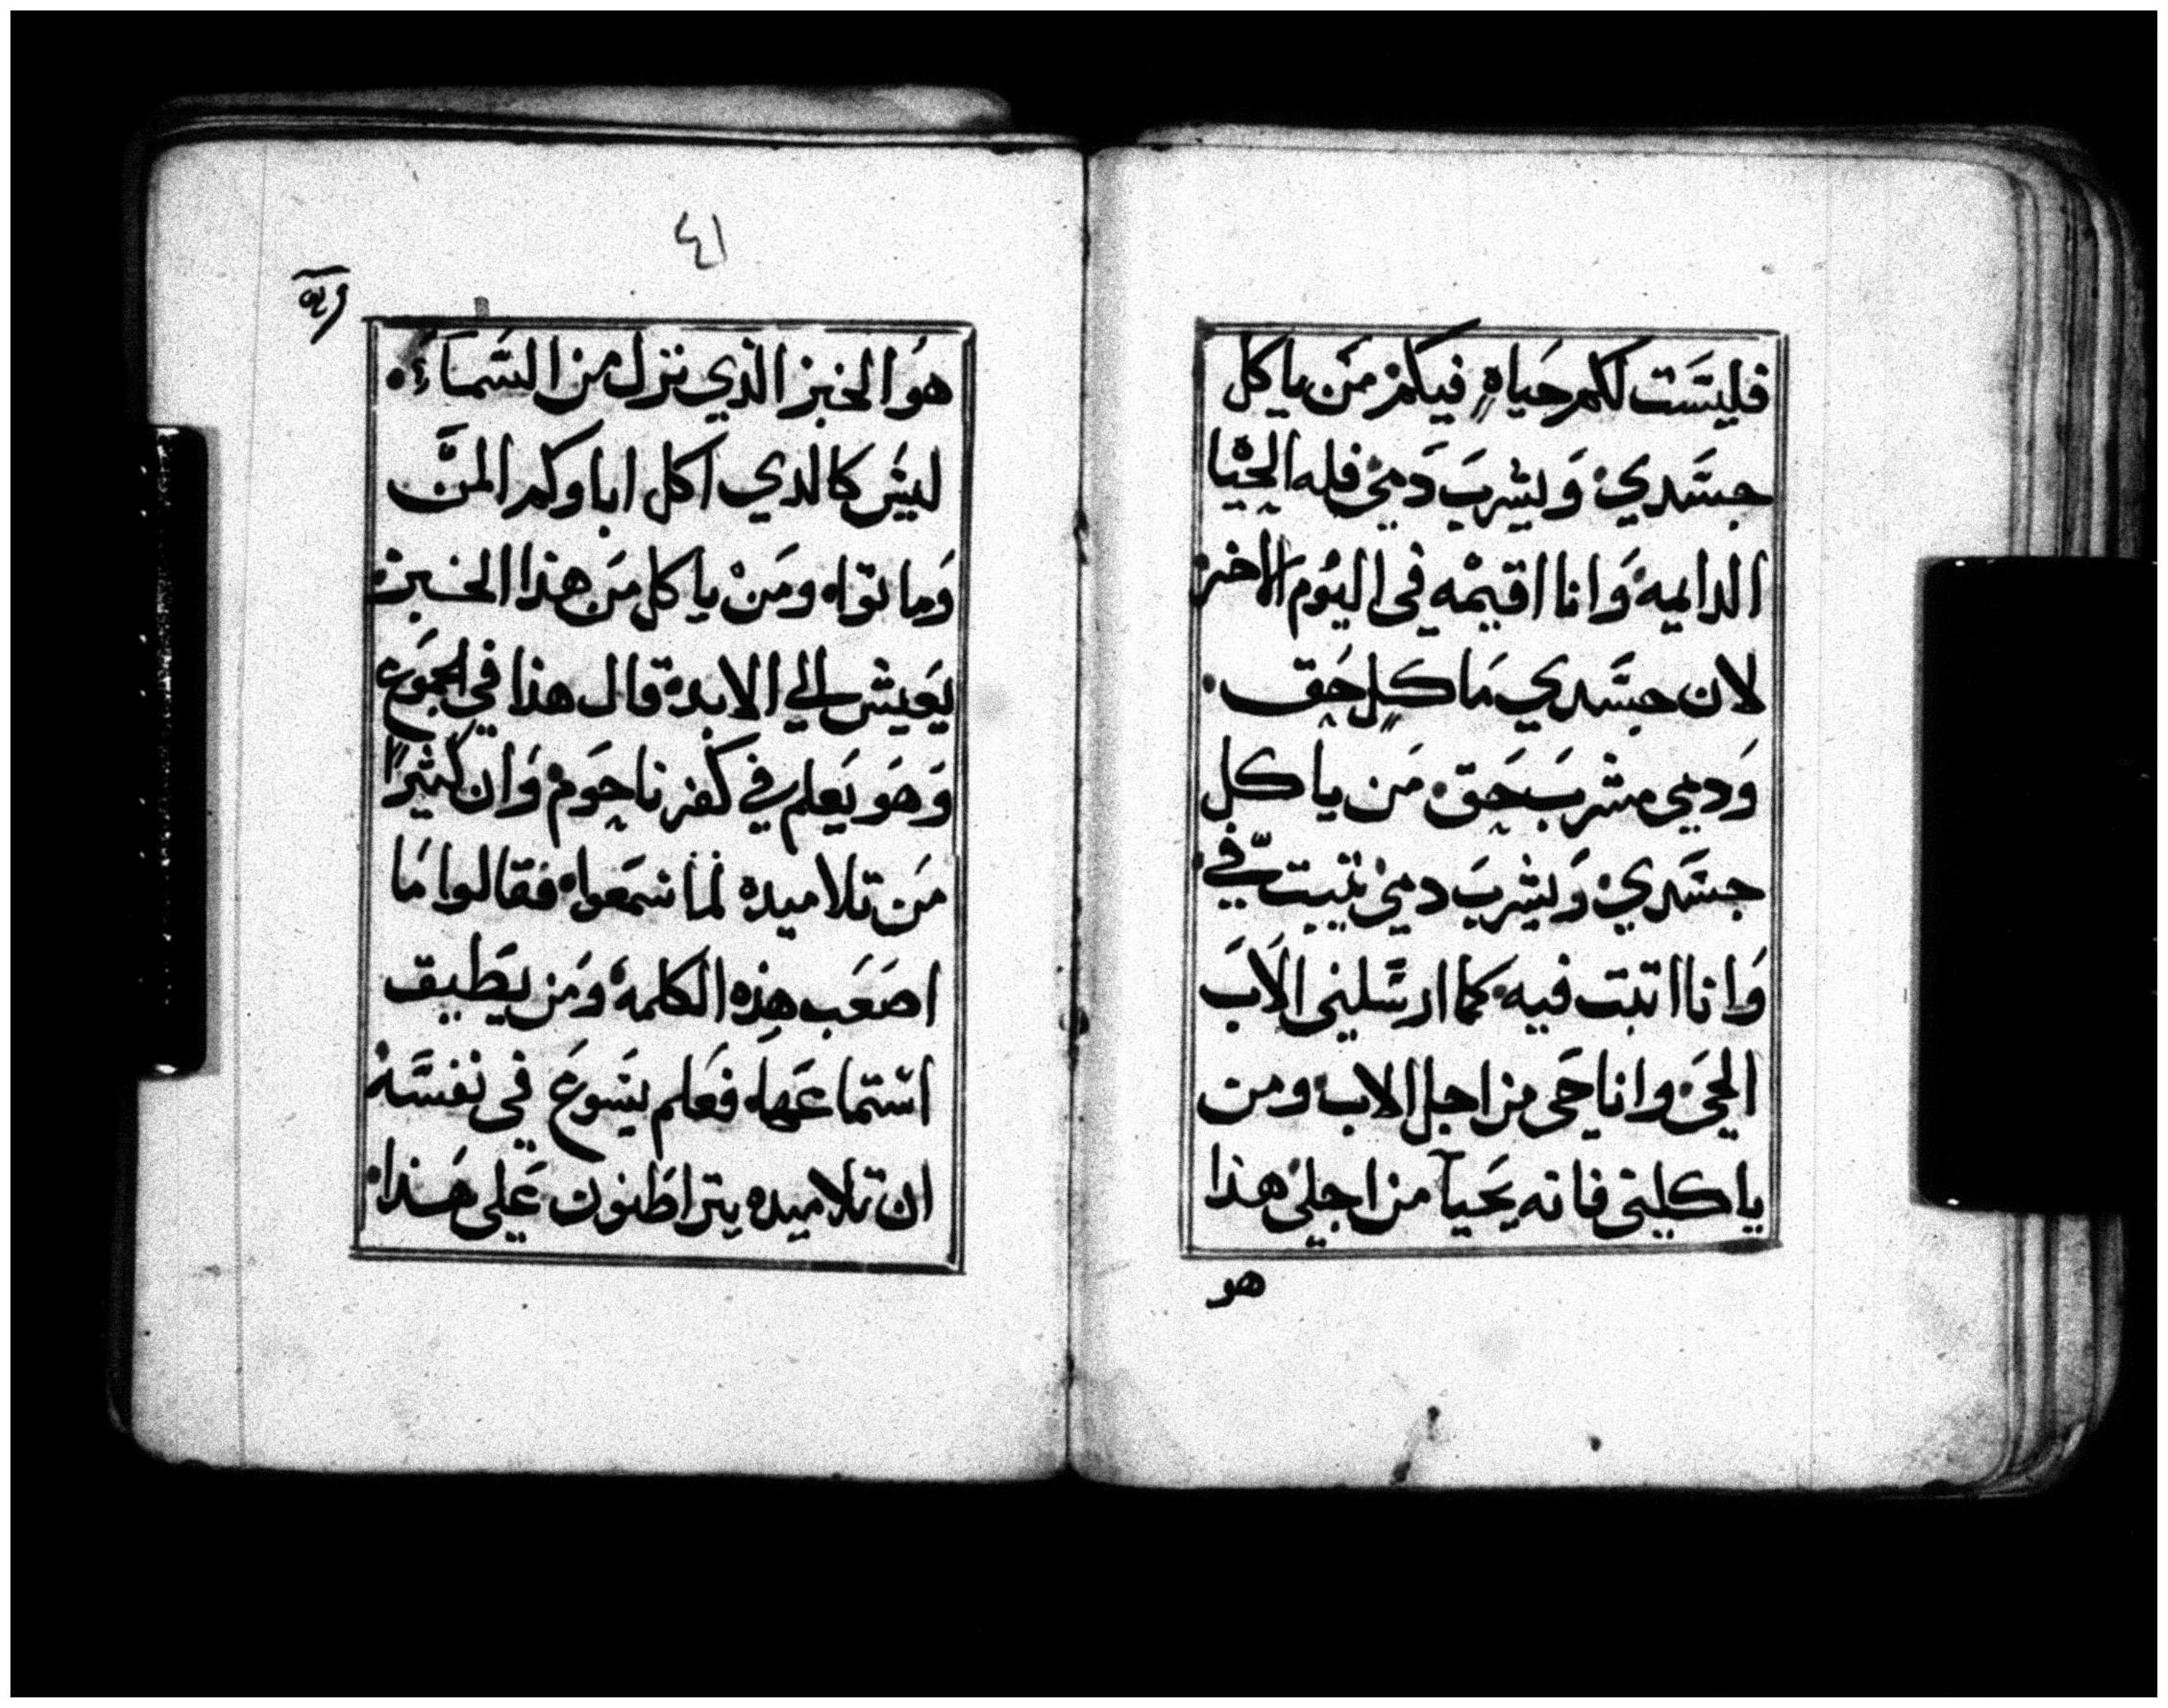 فليست لكم حياة فيكم من ياكل
جسدي ويشرب دمي فله الحيا
الدايمه وانا اقيمه في اليوم الاخر
لان جسدي ماكل حق
ودمي مشرب حق من ياكل
جسدي ويشرب دمي يثبت في
وانا اثبت فيه كما ارسلني الاب
الحي وانا حي من اجل الاب ومن
ياكلني فانه يحيا من اجلي هذا
هو
٤١
هو الخبز الذي نزل من السماء
ليس كالذي اكل اباوكم المن
وماتوا ومن ياكل من هذا الخبز
يعيش الي الابد قال هذا في الجموع
وهو يعلم في كفرناحوم وان كثيرا
من تلاميده لما سمعوا فقالوا ما
اصعب هذه الكلمه ومن يطيق
استماعها فعلم يسوع في نفسه
ان تلاميده يتراطنون علي هذا